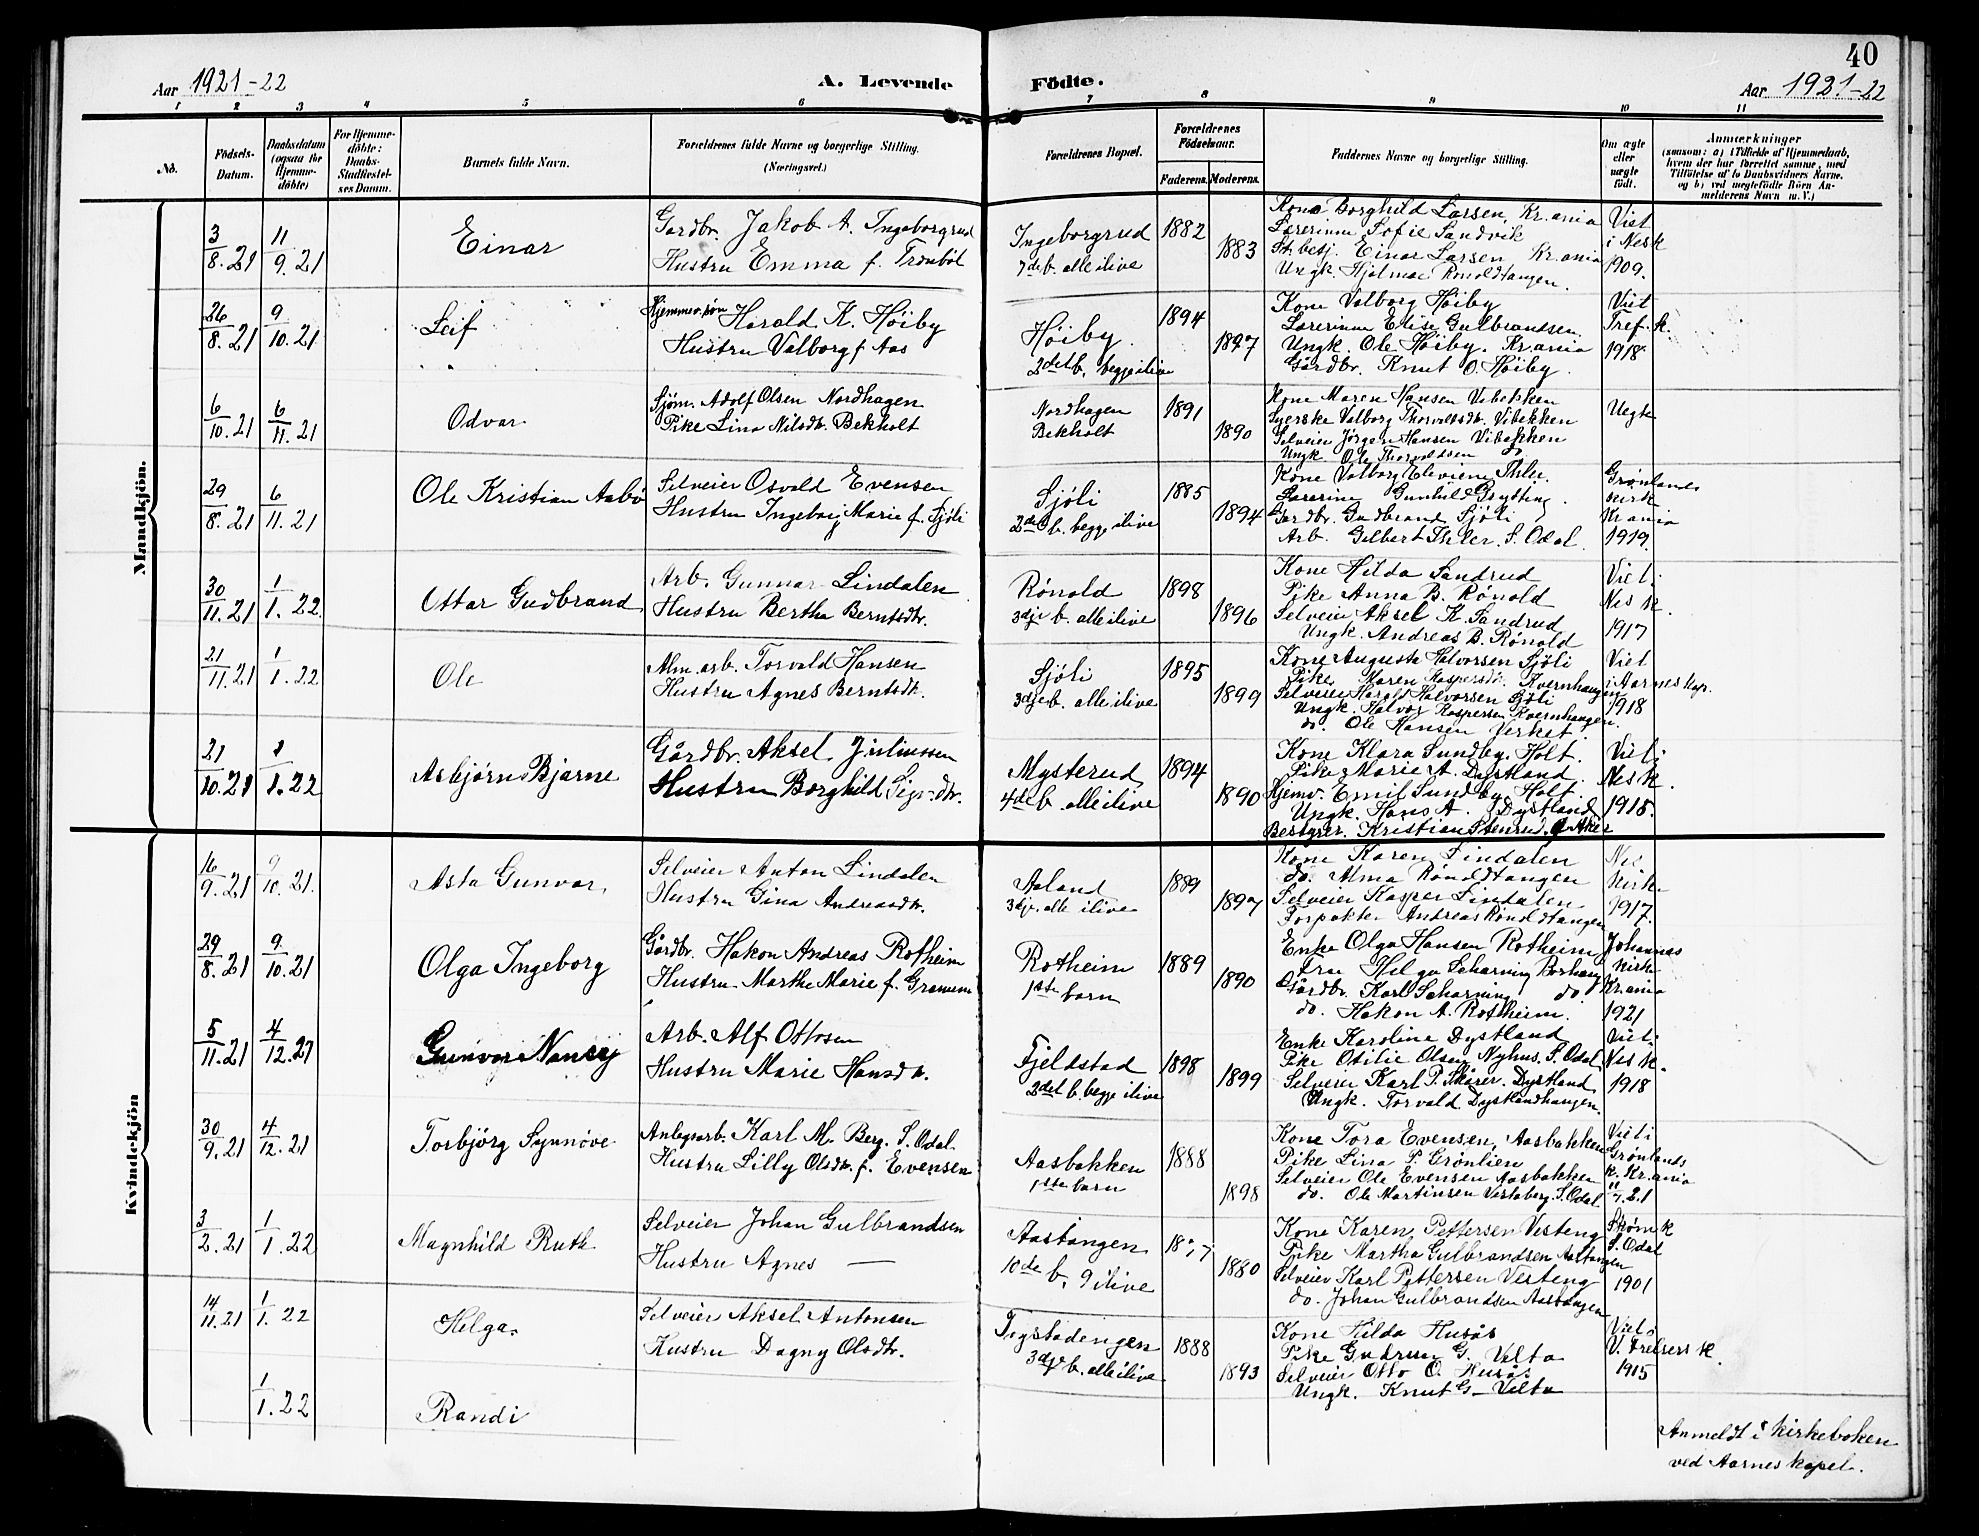 40
Aar 1921-22
A. Levende Födte.
Aar 1921-22
1 2 3 4 5 6 7 8 9 10 11
No.
Födsels-Datum.
Daabsdatum (ogsaa for Hjemme-döbte)
For Hjemme-döbte: Daabs-Stadfæstel-ses Datum.
Barnets fulde Navn.
Forældrenes fulde Navne og borgerlige Stilling. (Næringsvei.)
Forældrenes Bopæl.
Forældrenes Födselsaar.
Faderens. Moderens.
Faddernes Navne og borgerlige Stilling.
Om ægte eller uægte födt.
Anmærkninger
(saasom: a) i Tilfælde af Hjemmedaab, hvem der har forrettet samme, med Tilföielse af to Daabsvidners Navne, og b) ved uægtefödte Börn An-melderens Navn m. V.)
Mandkjön.
3/8.21 11/9.21 Einar
Gardbr. Jakob A. Ingeborgrud
Hustru Emma f. Tronböl
Ingeborgrud
7de b. alle ilive
1882 1883
Kone Borghild Larsen, Kr.ania
Lærerinne Sofie Sandvik
St.betj. Einar Larsen Kr.ania
Ungk. Hjalmar Rönoldtangen.
Viet
i Nes k
1909.
26/8.21 9/10.21 Leif
Hjemmev. søn Harald K. Höiby
Hustru Valborg f. Aas
Höiby.
2det b. begge ilive
1894 1897
Kone Valborg Höiby
Lærerinne Elise Gulbrandsen
Ungk. Ole Höiby. Kr.ania
Gårdbr. Knut O. Höiby.
Viet
Tref. k.
1918.
6/10.21 6/11.21 Odvar
Sjöm. Adolf Olsen Nordhagen
Pike Lina Nilsdtr. Bekholt
Nordhagen
Bekholt
1891 1890
Kone Maren Hansen Vibekken
Syerske Valborg Thorvaldsdtr. Vibekken
Selveier Jörgen Hansen Vibekken
Ungk. Ole Thorvaldsen do.
Uegte
29/8.21 6/11.21 Ole Kristian Aabö
Selveier Osvald Evensen
Hustru Ingeborg Marie f. Sjöli
Sjöli
2det b. begge ilive
1885 1894
Kone Valborg
Lærerinne Gunhild Grytting.
Gardbr. Gudbrand Sjöli
Arb. Gilbert S. Odal.
Grønlands
kirk
Kr.ania
1919.
30/11.21 1/1.22 Ottar Gudbrand
Arb. Gunnar Lindalen
Hustru Bertha Berntsdtr.
Rönold
3dje b. alle ilive
1898 1896
Kone Hilda Sandrud
Pike Anna B. Rönold
Selveier Aksel K. Sandrud
Ungk. Andreas B. Rönold
Viet i
Nes k.
1917
21/11.21 1/1.22 Ole
Alm. arb. Torvald Hansen
Hustru Agnes Berntsdtr.
Sjöli
3dje b. alle ilive
1895 1899
Kone Augusta Halvorsen Sjöli
Pike Maren Kaspersdtr. Kvernhaugen
Selveier Harald Halvorsen Sjöli
Ungk. Halvor Kaspersen Kvernhaugen.
do. Ole Hansen Verket
Viet
i Aarnes kap.
1918
21/10.21 1/1.22 Asbjørn Bjarne
Gårdbr. Aksel Juliussen
Hustru Borghild Sigv.dtr.
Mysterud
4de b. alle ilive
1894 1890
Kone Klara Sundby. Holt.
Pike Marie A. Dystland
Hjemv. Emil Sundby Holt.
Ungk. Hans A. Dystland
Bestyrer. Kristian Stenrud. Ö. Aker
Viet i
Nes k.
1915.
Kvindekjön
16/9.21 9/10.21 Asta Gunvor.
Selveier Anton Lindalen
Hustru Gina Andreasdtr.
Aaland
3dje. alle ilive
1889 1897
Kone Karen Lindalen
do. Alma Rönoldtangen
Selveier Kasper Lindalen
Forpakter Andreas Rönoldtangen
Nes
kirk.
1917.
29/8.21 9/10.21 Olga Ingeborg
Gårdbr. Hakon Andreas Rotheim
Hustru Marthe Marie f.
Rotheim
1ste barn
1889 1890
Enke Olga Hansen Rotheim
Frue Helga Scharning
Gårdbr. Karl Scharning do.
do. Hakon A. Rotheim.
Johannes
kirke
Kr.ania
1921
5/11.21 4/12.21 Gunvor Nancy
Arb. Alf Ottosen
Hustru Marie Hansdtr.
Fjeldstad
2det b. begge ilive
1898 1899
Enke Karoline Dystland
Pike Otilie Olsen Nyhus. S. Odal
Selveier Karl P. Skårer. Dystland
Ungk. Torvald Dystlandhaugen.
Viet i
Nes k.
1918
30/9.21 4/12.21 Torbjörg Synnöve
Anlegsarb. Karl M. Berg. S. Odal
Hustru Lilly Olsdtr. f. Evensen
Aasbakken
1ste barn
1888 1898
Kone Tora Evensen, Aasbakken
Pike Lina P. Grönlien
Selveier Ole Evensen Aasbakken
do. Ole Martinsen Vestaberg. S. Odal
Viet i
Grönlands
k. Kr.ania
11/7.21
3/2.21 1/1.22 Magnhild Ruth
Selveier Johan Gulbrandsen
Hustru Agnes —
Aastangen
10de b. 9 ilive
1880
Kone Karen Pettersen Vesteng
Pike Martha Gulbrandsen Aastangen
Selveier Karl Pettersen Vesteng
do. Johan Gulbrandsen Aastangen
Strøm k
S. Odal
1901
14/11.21 1/1.22 Helga.
Selveier Aksel Antonsen
Hustru Dagny Olsdtr.
Togstadengen
3dje b. alle ilive
1888 1893
Kone Hilda Husös
Pike Gudrun G. Velta
Selveier Otto O. Husös
Ungk. Knut G. Velta
Viet i
V. Frelsers k.
1915
1/1.22 Randi
Anmeldt i kirkeboken
ved Aarnes kapel.